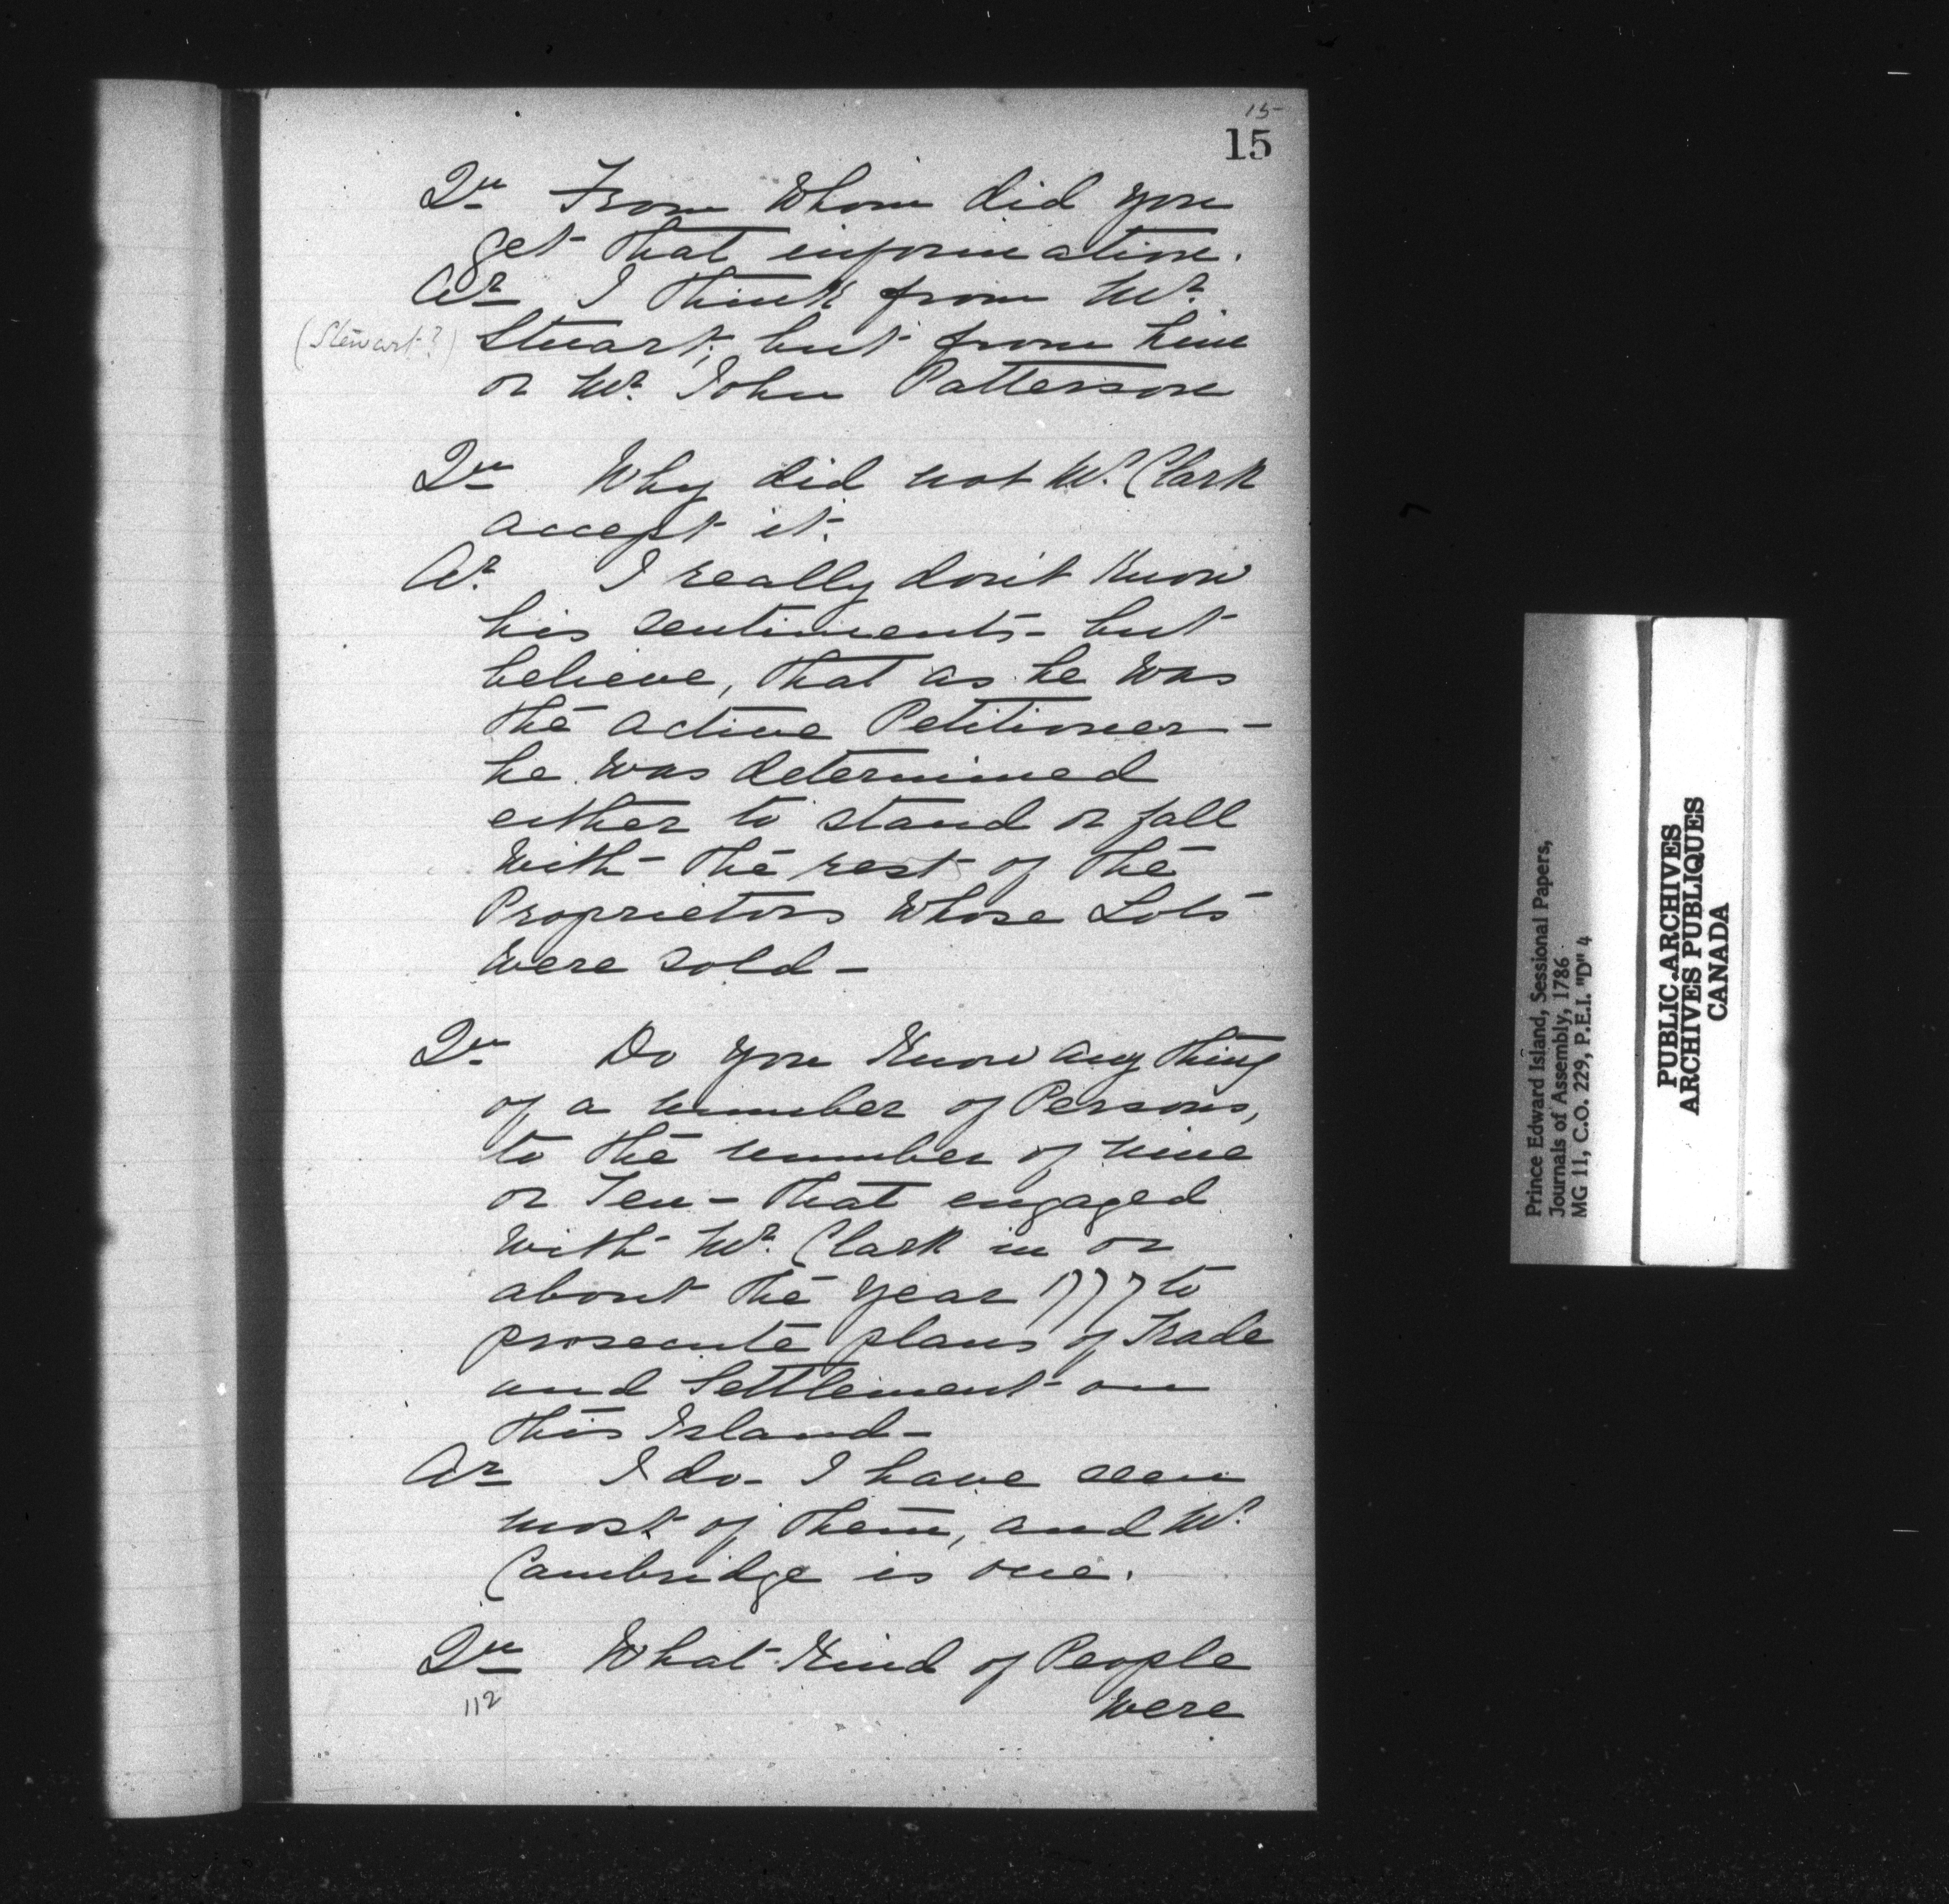 15
15
Qu From Whom did you
get that information.
Ar I think from Mr.
(Stewart?) Stuart; but from him
or Mr. John Patterson
Qu Why did not Mr. Clark
accept it.
Ar. I really don't Know
his sentiments - but
believe, that as he was
the active Petitioner -
he was determined
either to stand or fall
with the rest of the
Proprietors Whose Lots
were sold -
Qu Do you Know any thing
of a number of Persons,
to the number of nine
or Ten - that engaged
with Mr. Clark in or
about the year 1777 to
prosecute plans of Trade
and Settlement on
this Island -
Ar I do - I have seen
most of them, and Mr.
Cambridge is one.
Qu What Kind of People
were
112
Prince Edward Island, Sessional Papers,
Journals of Assembly, 1786
MG 11, C.O. 229, P.E.I. "D" 4
PUBLIC ARCHIVES
ARCHIVES PUBLIQUES
CANADA